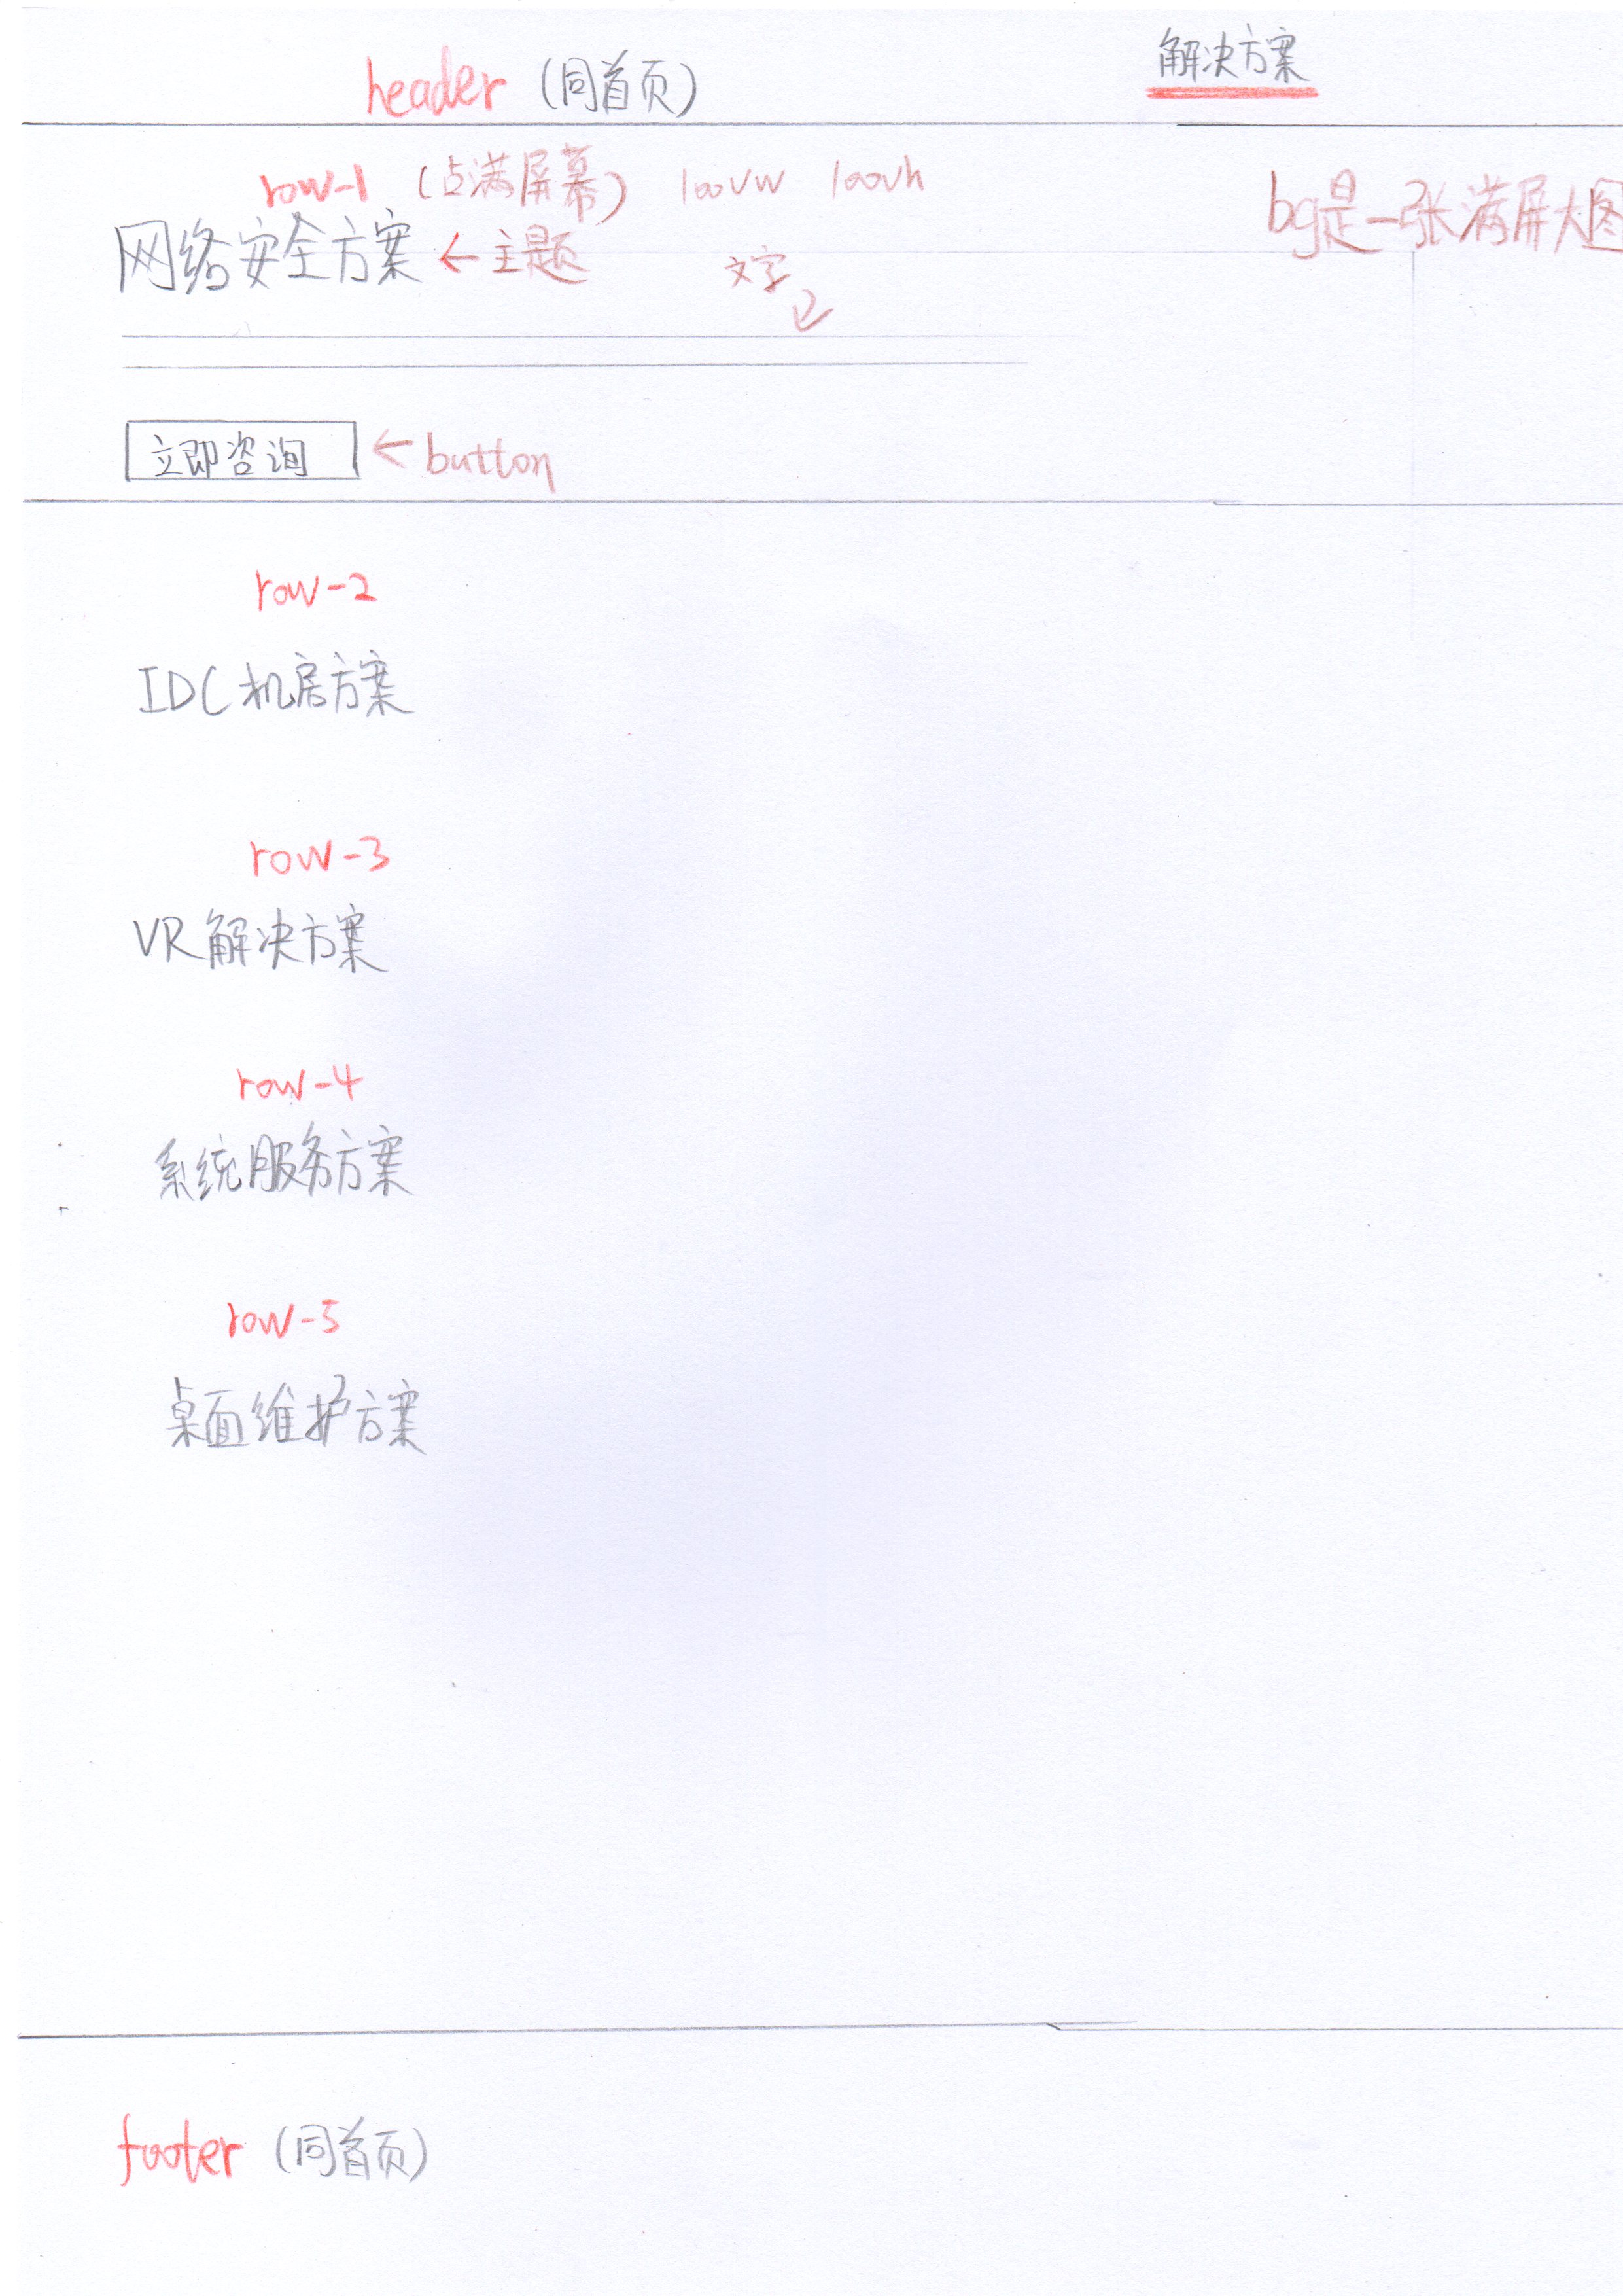 header (同首页) 解决方案
row-1 (占满屏幕) 100vw 100vh
bg是一张满屏大图
网络安全方案 ← 主题 文字
立即咨询 ← button
row-2
IDC机房方案
row-3
VR解决方案
row-4
系统服务方案
row-5
桌面维护方案
footer (同首页)